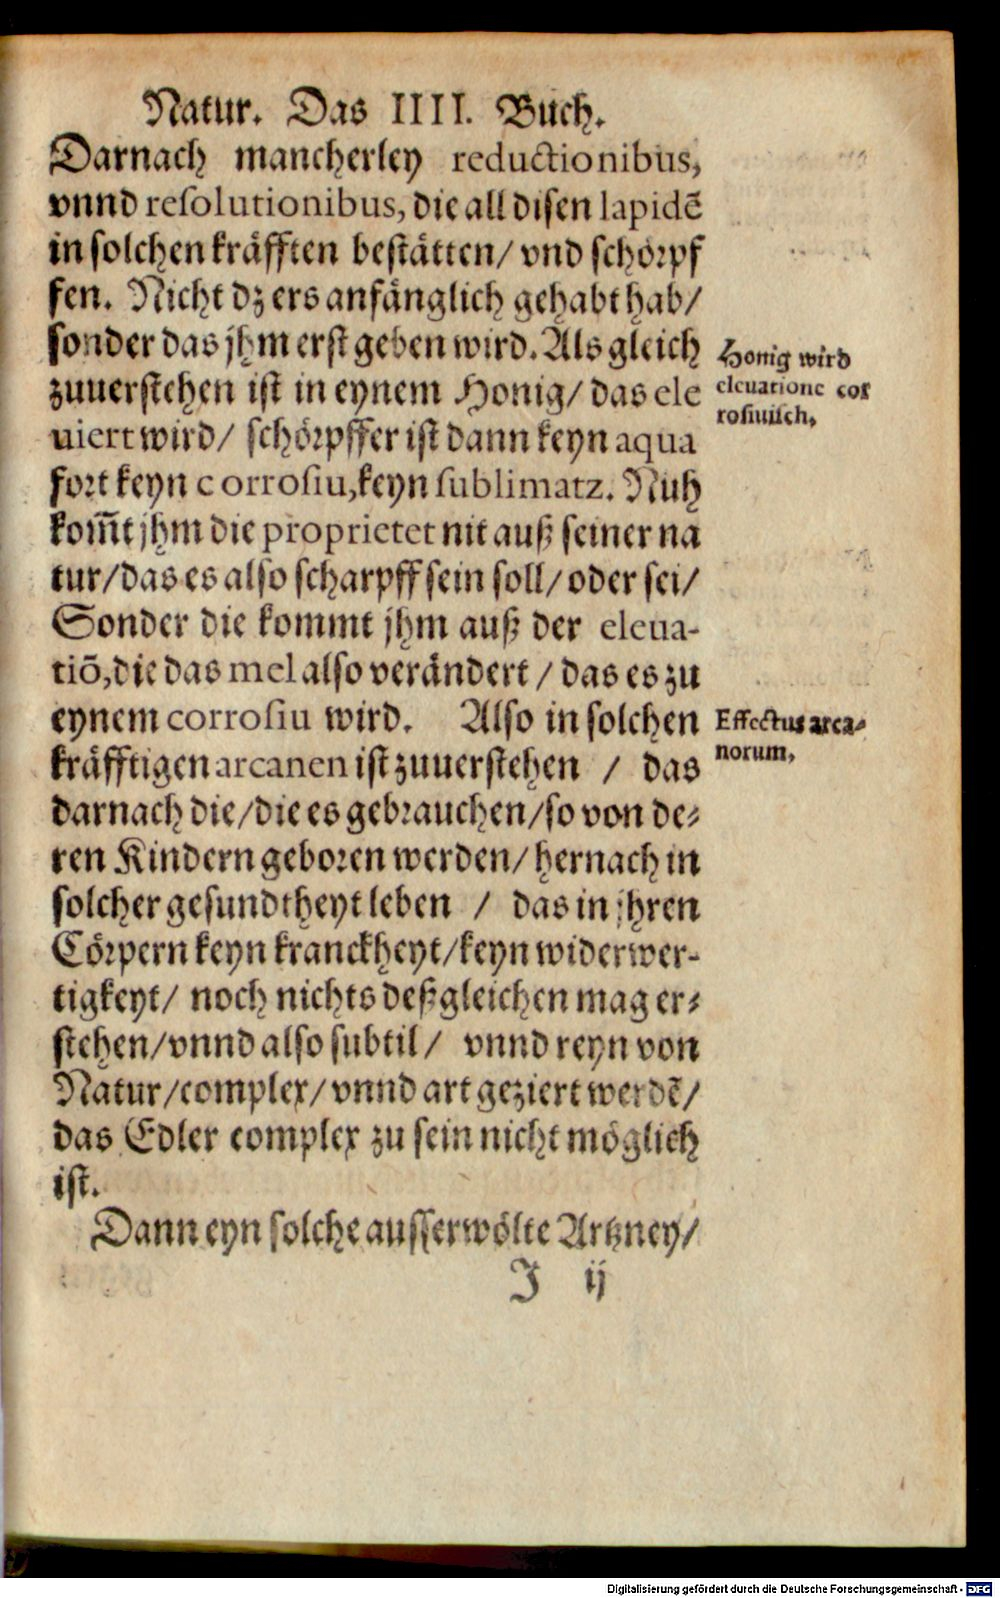 Natur. Das IIII. Buch.
Darnach mancherley reductionibus,
vnnd resolutionibus, die all disen lapidē
in solchen kräfften bestätten/ vnd schörpf
fen. Nicht dz ers anfänglich gehabt hab/
sonder das jhm erst geben wird. Als gleich
zuuerstehen ist in eynem Honig/ das ele
uiert wird/ schörpffer ist dann keyn aqua
fort keyn corrosiu, keyn sublimatz. Nuh
kom̄t jhm die proprietet nit auß seiner na
tur/ das es also scharpff sein soll/ oder sei/
Sonder die kommt jhm auß der eleua-
tiō, die das mel also verändert/ das es zu
eynem corrosiu wird. Also in solchen
kräfftigen arcanen ist zuuerstehen / das
darnach die/ die es gebrauchen/ so von de-
ren Kindern geboren werden/ hernach in
solcher gesundtheyt leben / das in jhren
Cörpern keyn kranckheyt/ keyn widerwer-
tigkeyt/ noch nichts deßgleichen mag er-
stehen/ vnnd also subtil/ vnnd reyn von
Natur/ complex/ vnnd art geziert werdē/
das Edler complex zu sein nicht möglich
ist.
Dann eyn solche ausserwölte Artzney/
J ij
Honig wird
eleuatione cor
rosiuisch,
Effectus arca-
norum,
Digitalisierung gefördert durch die Deutsche Forschungsgemeinschaft - DFG